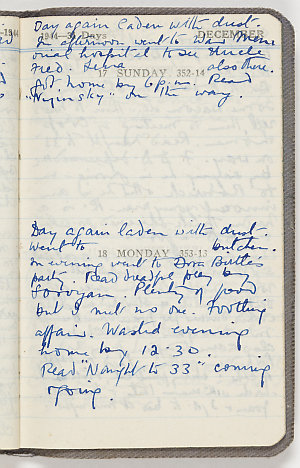 1944-31 Days DECEMBER
Day again laden with dust.
In afternoon went to War Mem-
orial hospital to see Uncle
17 SUNDAY 352-14
Fred. Lena also there.
Got home by 6 p.m. Read
"Nijinsky" on the way.
Day again laden with dust.
Went to butcher.
18 MONDAY 353-13
In evening went to Dora Birtles
party. Read dreadful play by
Soroyan. Plenty of food
but I met no one. Footling
affair. Wasted evening
home by 12.30.
Read "Nought to 33" coming
& going.